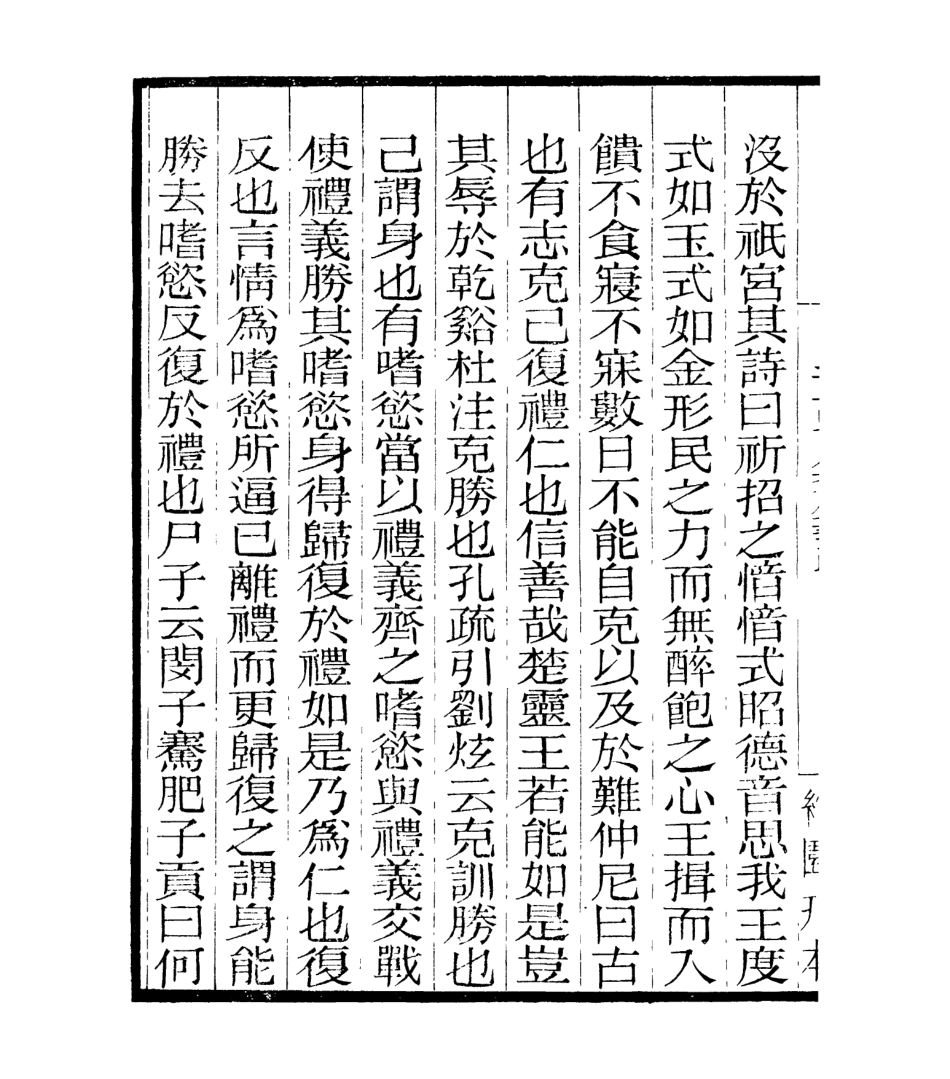 沒於祇宮其詩曰祈招之愔愔式昭德音思我王度
式如玉式如金形民之力而無醉飽之心王揖而入
饋不食寢不寐數日不能自克以及於難仲尼曰古
也有志克己復禮仁也信善哉楚靈王若能如是豈
其辱於乾谿杜注克勝也孔疏引劉炫云克訓勝也
己謂身也有嗜慾當以禮義齊之嗜慾與禮義交戰
使禮義勝其嗜慾身得歸復於禮如是乃爲仁也復
反也言情爲嗜慾所逼已離禮而更歸復之謂身能
勝去嗜慾反復於禮也尸子云閔子騫肥子貢曰何